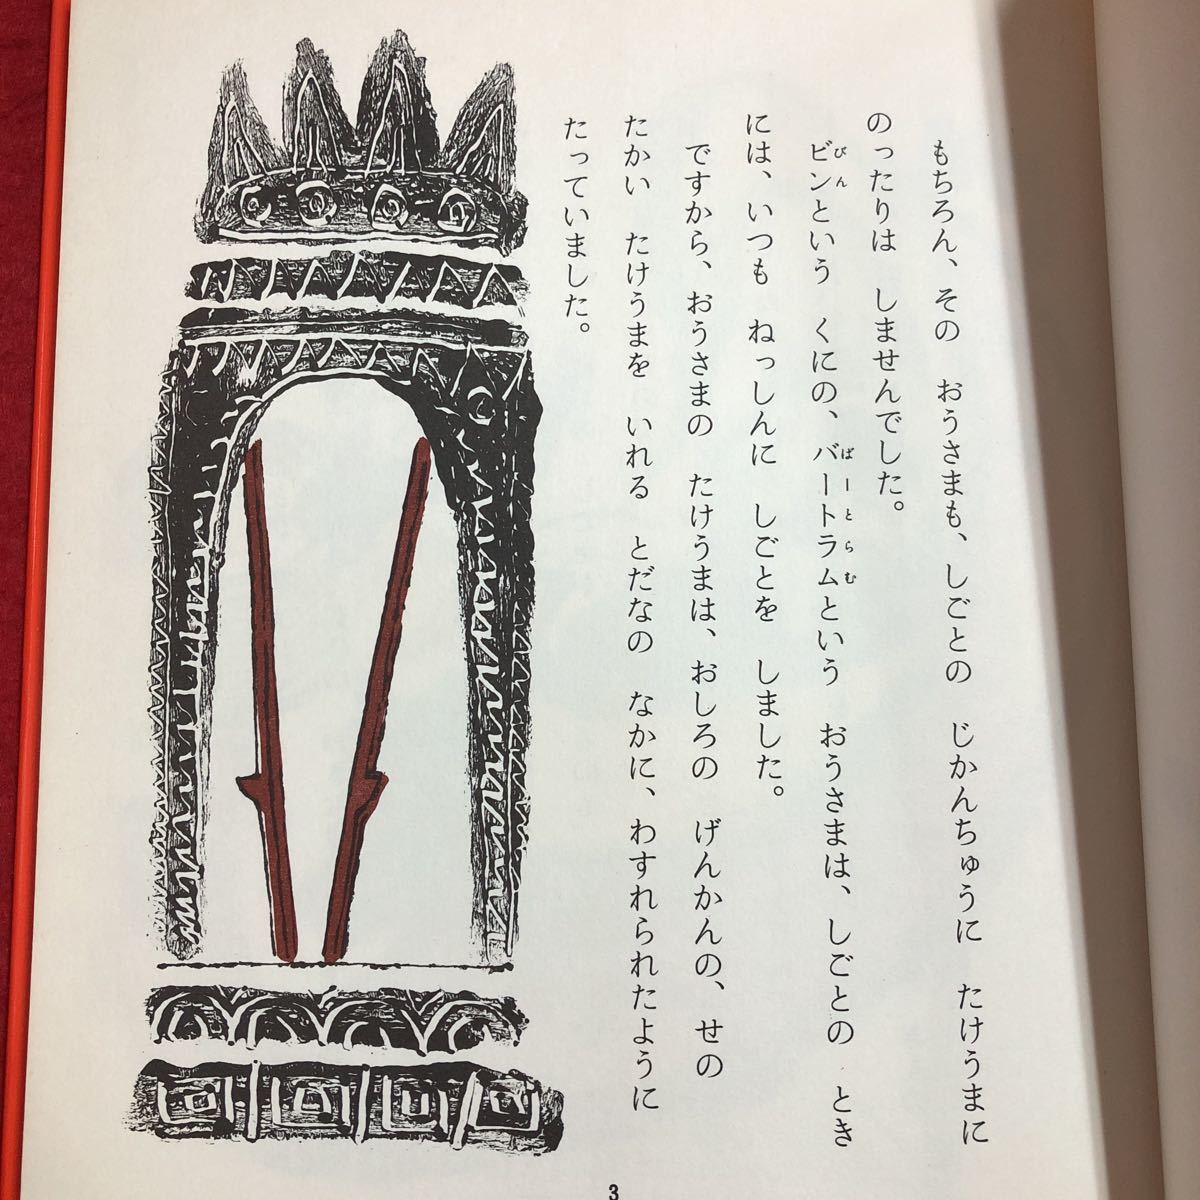 もちろん、その　おうさまも、しごとの　じかんちゅうに　たけうまに
のったりは　しませんでした。
ビンという　くにの、バートラムという　おうさまは、しごとの　とき
びん
ばーとらむ
には、いつも　ねっしんに　しごとを　しました。
ですから、おうさまの　たけうまは、おしろの　げんかんの、せの
たかい　たけうまを　いれる　とだなの　なかに、わすれられたように
たっていました。
3